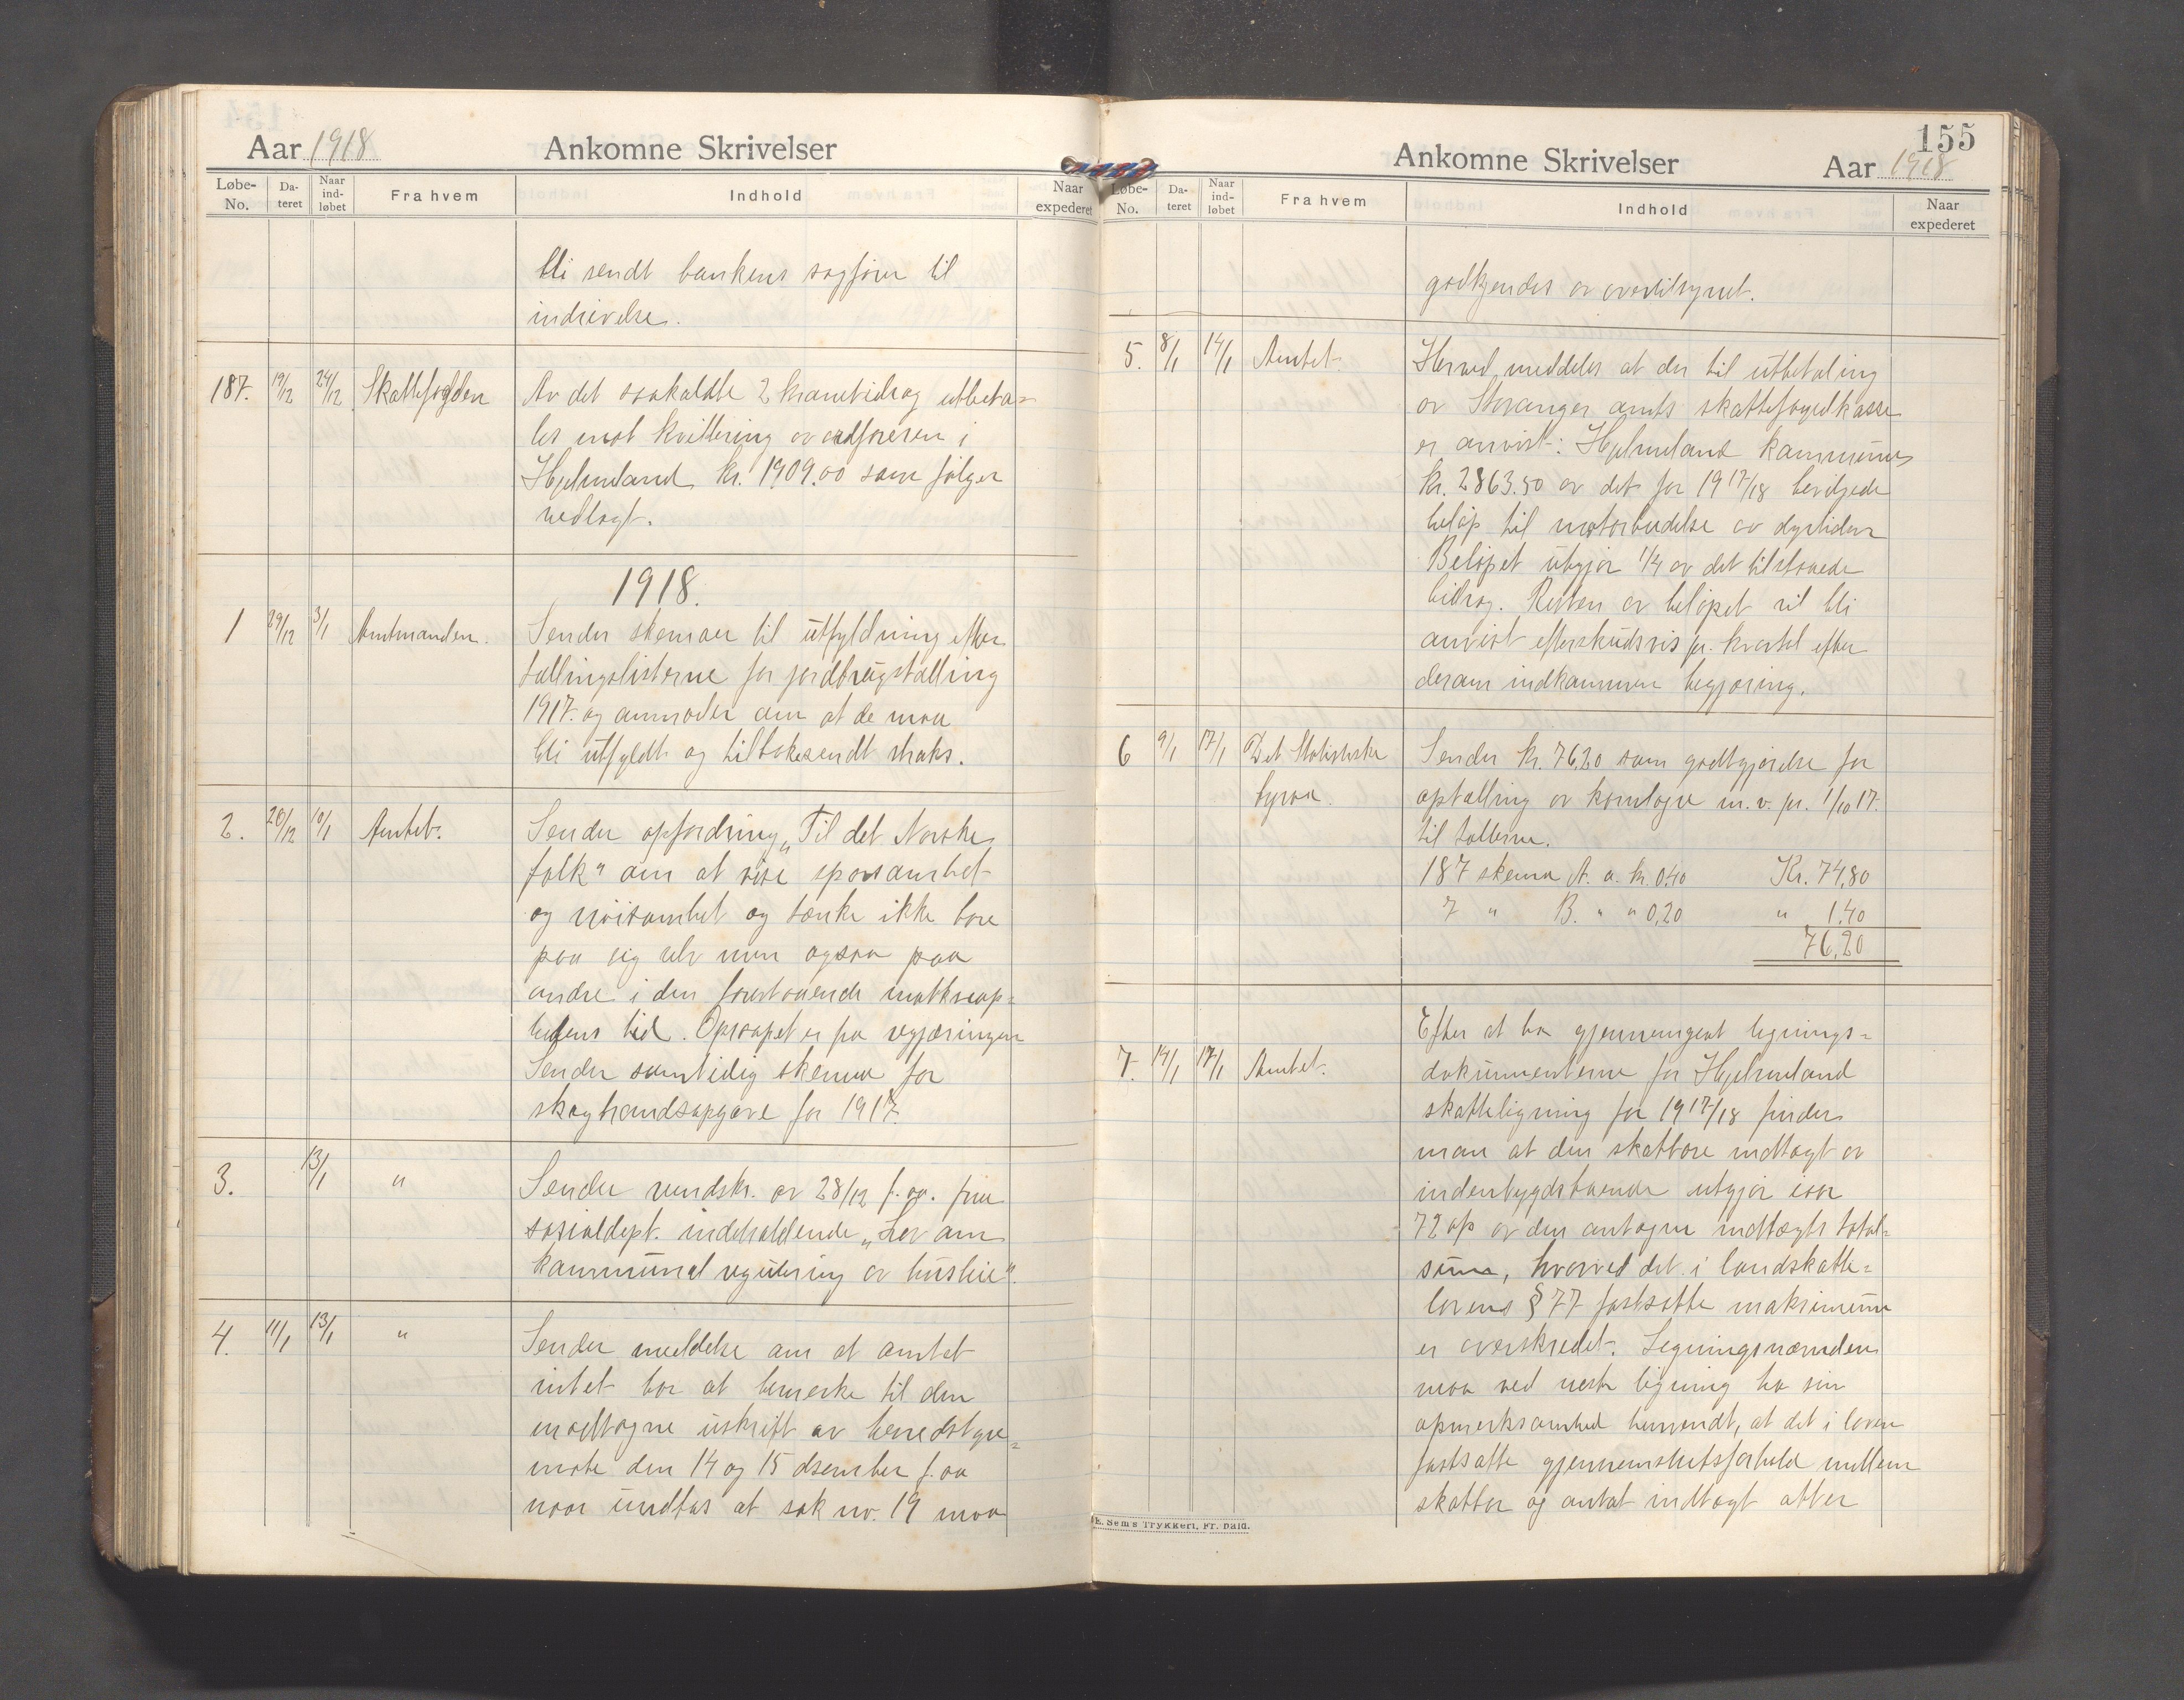 Aar 1918 Ankomne Skrivelser
Løbe-No. Da-teret Naar ind-løbet Fra hvem Indhold Naar expederet
bli sendt bankens sagfører til
indrivelse.
187. 19/12 24/12 Skattefogden Av det saakaldte 2 kronebidrag utbeta-
les mot kvittering av ordføreren i
Hjelmeland kr. 1909.00 som følger
vedlagt.
1918.
1 29/12 3/1 Amtmanden. Sender skemaer til utfyldning efter
tællingslisterne for jordbrugstælling
1917. og anmoder om at de maa
bli utfyldt og tilbakesendt straks.
2. 28/12 10/1 Amtet. Sender opfordring „Til det Norske
folk" om at vise sparsamhet
og nøisomhet og tænke ikke bare
paa sig selv men ogsaa paa
andre i den forestaaende matknap-
hetens tid. Opraapet er fra regjæringen
Sender samtidig skema for
skogbrandsopgave for 1917.
3. 13/1 " Sender rundskr. av 28/12 f. aa. fra
sosialdept. indeholdende „Lov om
kommunal regulering av husleie".
4. 11/1 13/1 " Sender meddelse om at amtet
intet har at bemerke til den
modtagne utskrift av herredstyre-
møte den 14 og 15 desember f. aa
naar undtas at sak nr. 19 maa
155
Ankomne Skrivelser Aar 1918
Løbe-No. Da-teret Naar ind-løbet Fra hvem Indhold Naar expederet
godkjendes av overtilsynet.
5. 8/1 14/1 Amtet. Herved meddeles at der til utbetaling
av Stavanger amts skattefogedkasse
er anvist: Hjelmeland kommune
kr. 2863.50 av det for 1917/18 bevilgede
beløp til motarbeidelse av dyrtiden
Beløpet utgjør 1/4 av det tilstaaede
bidrag. Resten av beløpet vil bli
anvist efterskudsvis pr. kvartal efter
derom indkommen begjæring.
6 9/1 17/1 Det Statistiske Sender kr. 76,20 som godtgjørelse for
byraa. optælling av kornlagre m. v. pr. 1/10 17.
til tællerne.
187 skema A. a. kr. 0,40 Kr. 74,80
7 " B. " " 0,20 " 1.40
76,20
Efter at ha gjennemgaat lignings-
7. 14/1 17/1 Amtet. dokumenterne for Hjelmeland
skatteligning for 1917/18 finder
man at den skatbare indtægt av
indenbygdsboende utgjør især
72 op av den antagne indtægts total-
sum, hvorved det i landskatte-
lovens § 77 fastsatte maksimum
er overskredet. Ligningsnævnden
maa ved neste ligning ha sin
opmerksomhed henvendt, at det i loven
fastsatte gjennemsnitsforhold mellem
skatbar og antat indtægt atter
E. Sem's Trykkeri, Fr.hald.